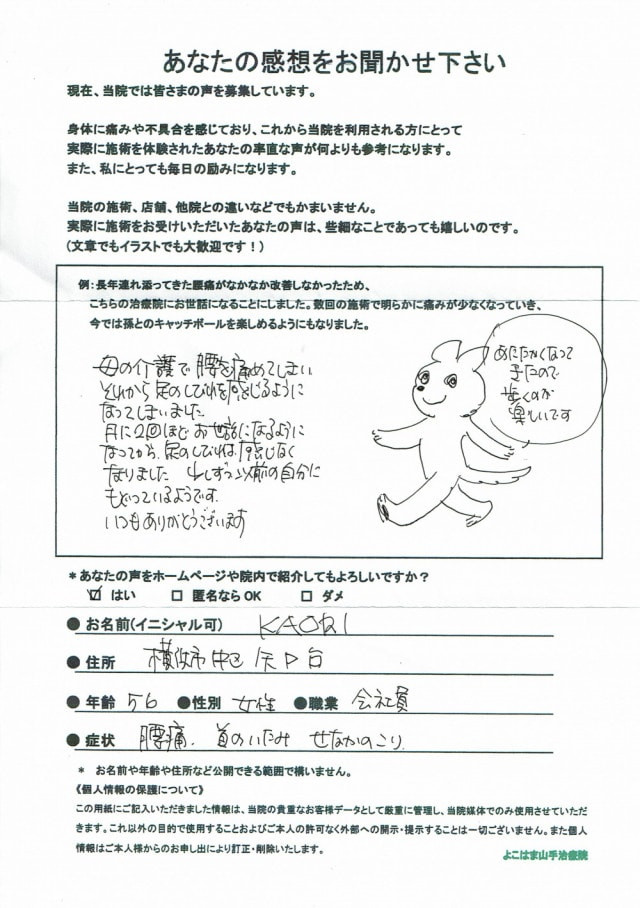 あなたの感想をお聞かせ下さい
現在、当院では皆さまの声を募集しています。
身体に痛みや不具合を感じており、これから当院を利用される方にとって
実際に施術を体験されたあなたの率直な声が何よりも参考になります。
また、私にとっても毎日の励みになります。
当院の施術、店舗、他院との違いなどでもかまいません。
実際に施術をお受けいただいたあなたの声は、些細なことであっても嬉しいのです。
(文章でもイラストでも大歓迎です!)
例:長年連れ添ってきた腰痛がなかなか改善しなかったため、
こちらの治療院にお世話になることにしました。数回の施術で明らかに痛みが少なくなっていき、
今では孫とのキャッチボールを楽しめるようにもなりました。
母の介護で腰を痛めてしまい
それから足のしびれを感じるように
なってしまいました
月に2回ほどお世話になるように
なってから、足のしびれは感じなく
なりました 少しずつ以前の自分に
もどっているようです。
いつもありがとうございます
あたたかくなって
きたので
歩くのが
楽しいです
*あなたの声をホームページや院内で紹介してもよろしいですか?
☑ はい □ 匿名ならOK □ ダメ
● お名前(イニシャル可) KAORI
● 住所 横浜市中区矢口台
● 年齢 56 ●性別 女性 ●職業 会社員
● 症状 腰痛、首のいたみ せなかのこり
* お名前や年齢や住所など公開できる範囲で構いません。
《個人情報の保護について》
この用紙にご記入いただきました情報は、当院の貴重なお客様データとして厳重に管理し、当院媒体でのみ使用させていただ
きます。これ以外の目的で使用することおよびご本人の許可なく外部への開示・提示することは一切ございません。また個人
情報はご本人様からのお申し出により訂正・削除いたします。
よこはま山手治療院